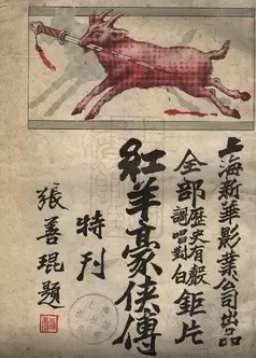 上海新華影業公司出品
全部歷史有聲謌唱對白鉅片
紅羊豪俠傳
特刊
張善琨題